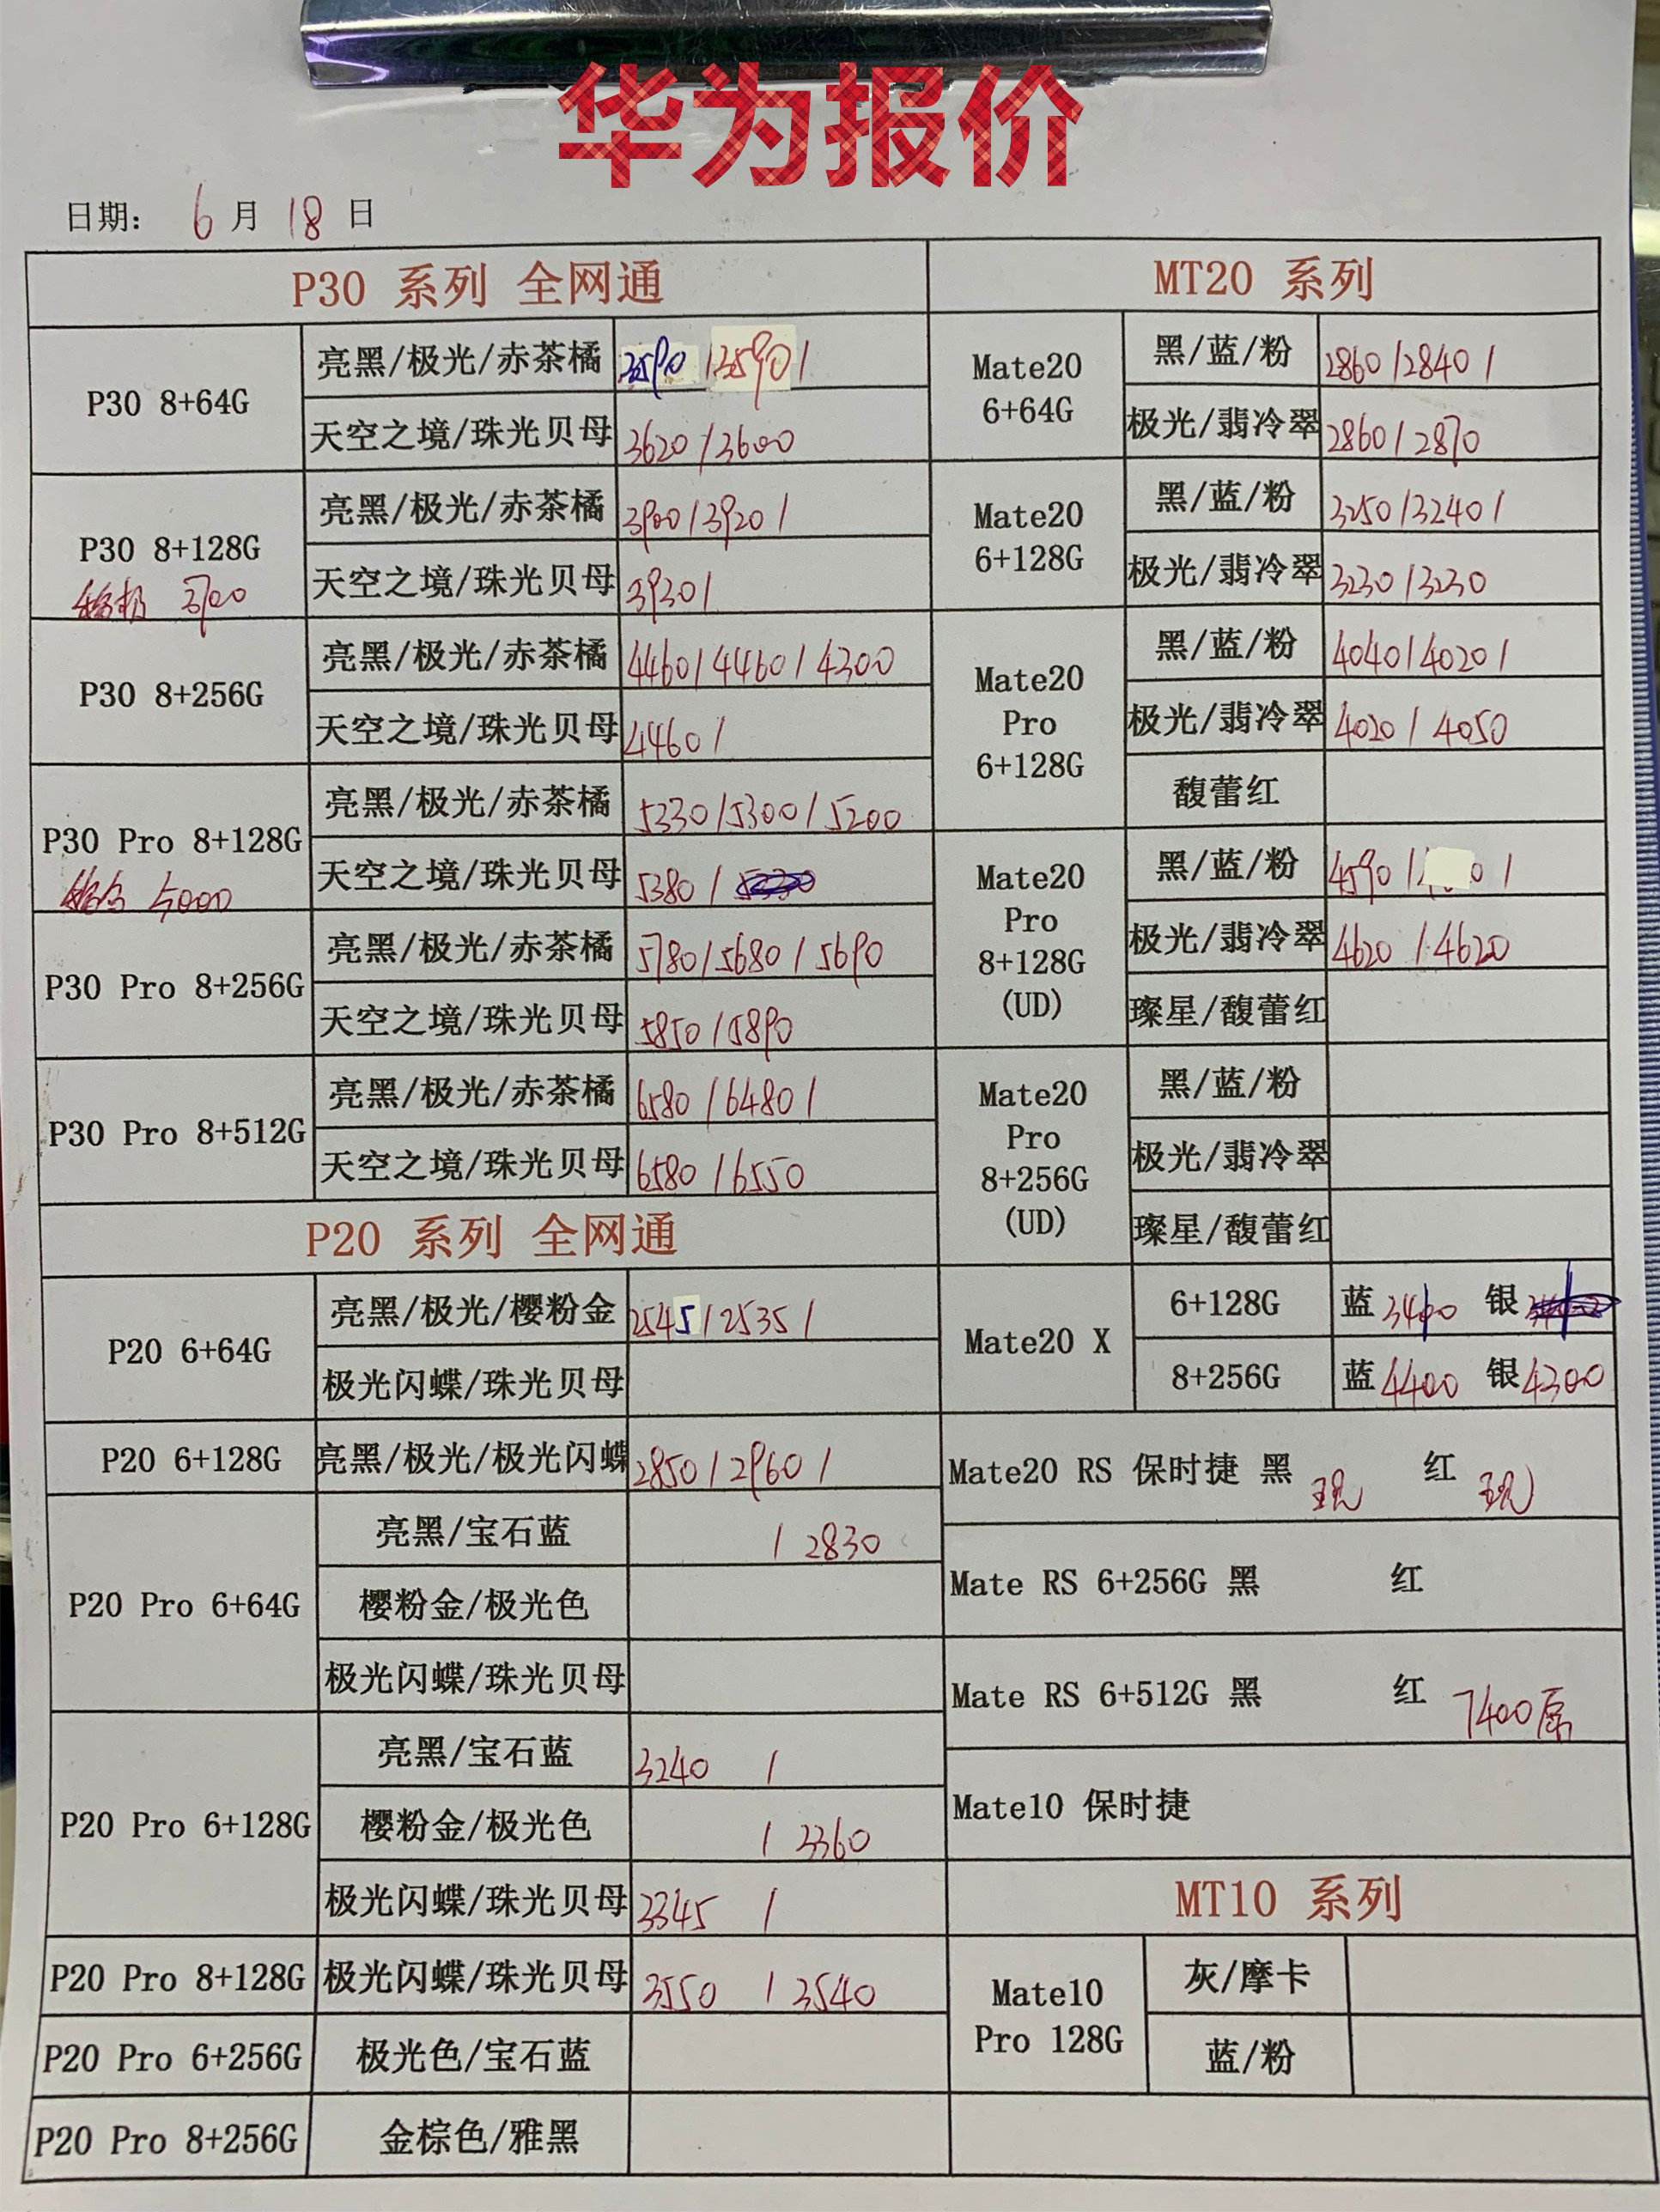 华为报价
日期： 6月18日
P30 系列 全网通
P30 8+64G
亮黑/极光/赤茶橘 3590/3590/
天空之境/珠光贝母 3620/3600
P30 8+128G
3700
亮黑/极光/赤茶橘 3900/3920/
天空之境/珠光贝母 3930/
P30 8+256G
亮黑/极光/赤茶橘 4460/4460/4300
天空之境/珠光贝母 4460/
P30 Pro 8+128G
5000
亮黑/极光/赤茶橘 5330/5300/5200
天空之境/珠光贝母 5380/
P30 Pro 8+256G
亮黑/极光/赤茶橘 5780/5680/5690
天空之境/珠光贝母 5850/5890
P30 Pro 8+512G
亮黑/极光/赤茶橘 6580/6480/
天空之境/珠光贝母 6580/6550
P20 系列 全网通
P20 6+64G
亮黑/极光/樱粉金 2545/2535/
极光闪蝶/珠光贝母
P20 6+128G
亮黑/极光/极光闪蝶 2850/2960/
P20 Pro 6+64G
亮黑/宝石蓝 /2830
樱粉金/极光色
极光闪蝶/珠光贝母
P20 Pro 6+128G
亮黑/宝石蓝 3240 /
樱粉金/极光色 /3360
极光闪蝶/珠光贝母 3345 /
P20 Pro 8+128G
极光闪蝶/珠光贝母 3550 /3540
P20 Pro 6+256G
极光色/宝石蓝
P20 Pro 8+256G
金棕色/雅黑
MT20 系列
Mate20
6+64G
黑/蓝/粉 2860/2840/
极光/翡冷翠 2860/2870
Mate20
6+128G
黑/蓝/粉 3250/3240/
极光/翡冷翠 3230/3230
Mate20
Pro
6+128G
黑/蓝/粉 4040/4020/
极光/翡冷翠 4020/4050
馥蕾红
Mate20
Pro
8+128G
(UD)
黑/蓝/粉 4590/
极光/翡冷翠 4620/4620
璨星/馥蕾红
Mate20
Pro
8+256G
(UD)
黑/蓝/粉
极光/翡冷翠
璨星/馥蕾红
Mate20 X
6+128G 蓝 银
8+256G 蓝4400 银4300
Mate20 RS 保时捷 黑 现 红 现
Mate RS 6+256G 黑 红
Mate RS 6+512G 黑 红 7400
Mate10 保时捷
MT10 系列
Mate10
Pro 128G
灰/摩卡
蓝/粉